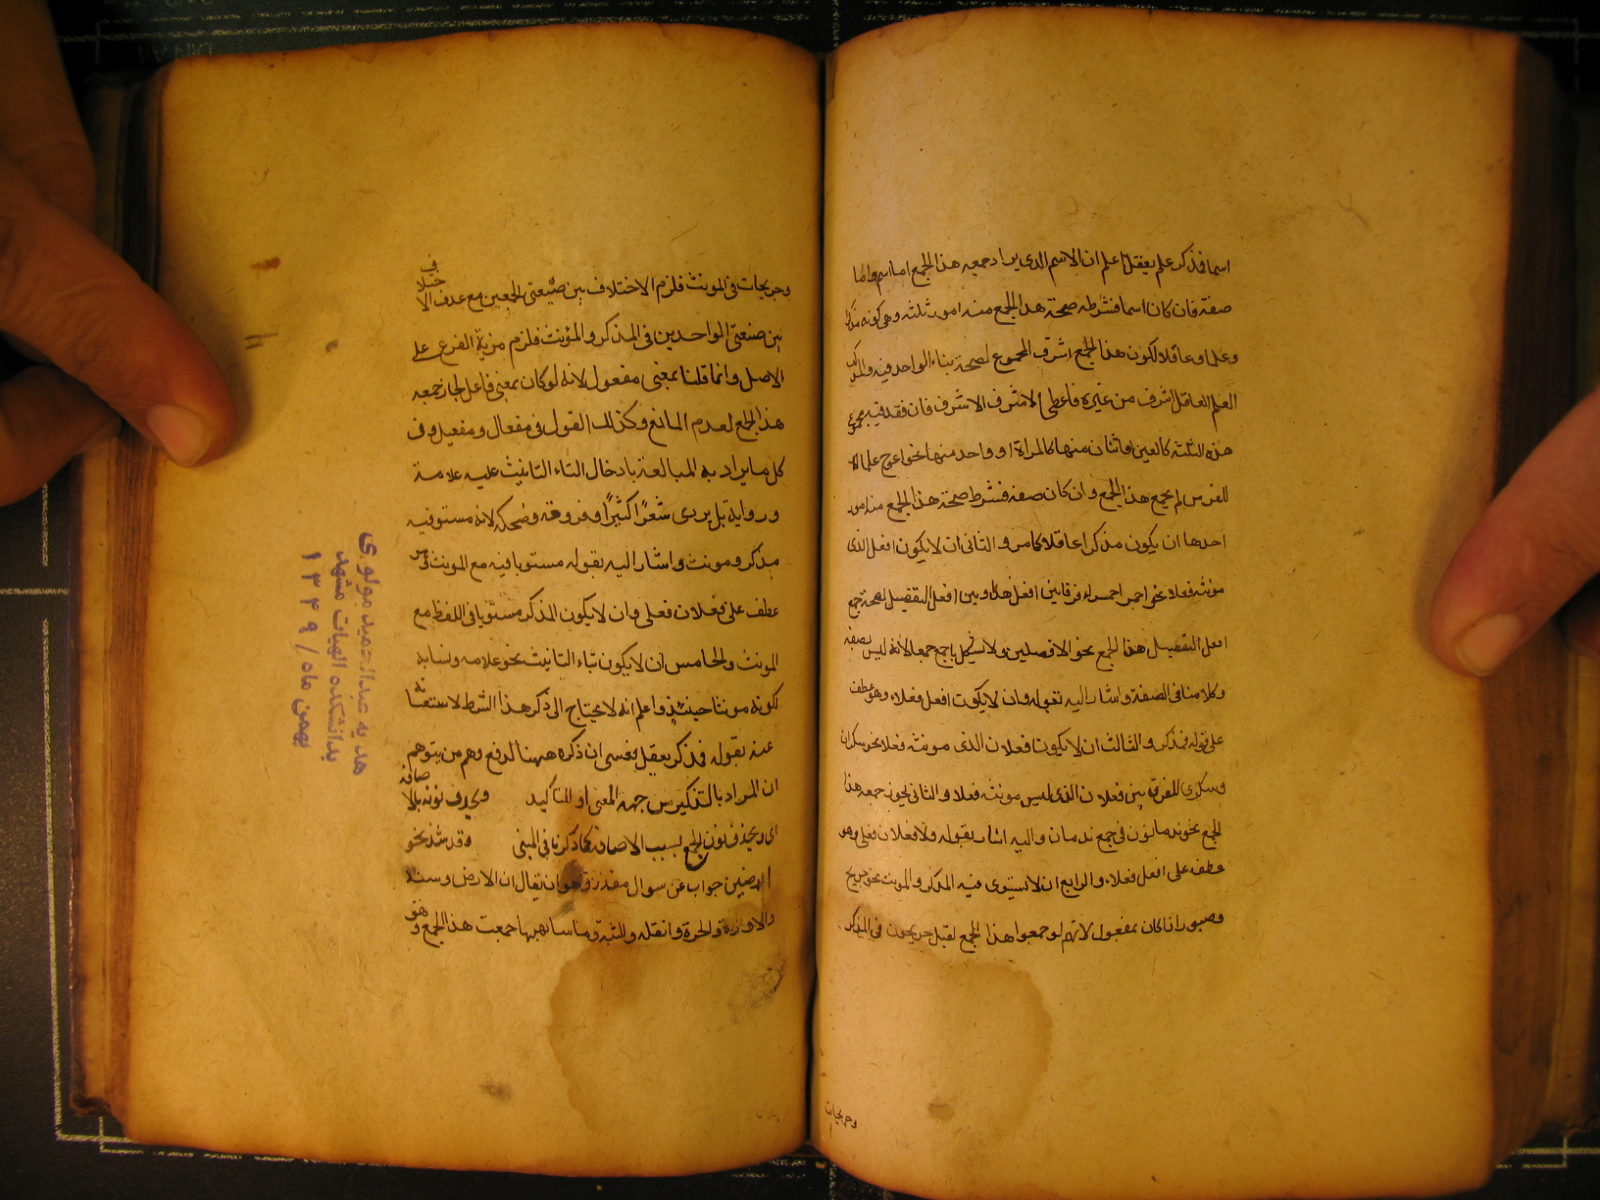 اسما فذكر علم يعقل اعلم ان الاسم الذى يراد جمعه هذا الجمع اما اسم واما
صفة فان كان اسما فشرطه صحة هذا الجمع منه امور ثلثة وهى كونه مذكرا
وعلما وعاقلا ولكون هذا الجمع اشرف الجموع لصحة بناء الواحد فيه والمذكر
العلم العاقل اشرف من غيره فاعطى الاشرف الاشرف فان فقد فيه مجموع
هذه الثلثة كالعين او اثنان منها كالمراة او واحد منها نحو اعوج علما
للفرس لم يجمع هذا الجمع وان كان صفة فشرط صحة هذا الجمع منه امور
احدها ان يكون مذكرا عاقلا كما مر و الثانى ان لا يكون افعل الذى
مؤنثه فعلاء نحو احمر احمراء فرقا بين افعل هذا وبين افعل التفضيل لصحة جمع
افعل التفضيل هذا الجمع نحو الافضلين ولا يشكل باجمع جمعا لانه ليس بصفة
وكلامنا فى الصفة واشار اليه بقوله وان لا يكون افعل فعلاء وهو عطف
على قوله فذكر و الثالث ان لا يكون فعلان الذى مونثه فعلا نحو سكران
وسكرى للفرق بين فعلان الذى ليس مونثه فعلا و الثانى يجوز جمعه هذا
الجمع نحو ندمانون فى جمع ندمان واليه اشار بقوله ولا فعلان فعلى وهو
عطف على افعل فعلاء والرابع ان لا يستوى فيه المذكر والمونث نحو جريح
وصبور اذا كان بمفعول لانهم لو جمعوا هذا الجمع لقيل جريحون فى المذكر
وجريحات
وجريحات فى المونث فلزم الاختلاف بين صيغتى الجمعين مع عدم الاختلاف
بين صنعتى الواحدين فى المذكر والمؤنث فلزم مزية الفرع على
الاصل وانما قلنا بمعنى مفعول لانه لو كان بمعنى فاعل لجاز جمعه
هذا الجمع لعدم المانع وكذلك القول فى مفعال ومفعيل وفى
كل ما يراد به المبالغة بادخال التاء التانيث عليه علامة
و رواية بل يروى شعرًا كثيرًا وفروقه وضحكه لانه مستوفيه
مذكر ومونث واشار اليه بقوله مستويا فيه مع المونث وهو
عطف على فعلان فعلى وان لا يكون المذكر مستويا فى اللفظ مع
المونث والخامس ان لا يكون بتاء التانيث نحو علامه ونسابه
لكونه مونثا حينئذ واعلم انه لا يحتاج الى ذكر هذا الشرط لاستغنائه
عنه بقوله فذكر يعقل فعسى ان ذكره ههنا لدفع وهم من يتوهم
ان المراد بالتذكير من جهه المعنى او للتاكيد ويحذف نونه بالاضافه
اى ويحذف نون الجمع بسبب الاضافه كما ذكرنا فى المثنى وقد شذ نحو
الارضين جواب عن سوال مقدر وهو ان يقال ان الارض وسنه
والاوزة والحرة وانقله وللثبة وما سابهها جمعت هذا الجمع
هديه عبدالحميد مولوى
بدانشكده الهيات مشهد
بهمن ماه / ١٣٤٩